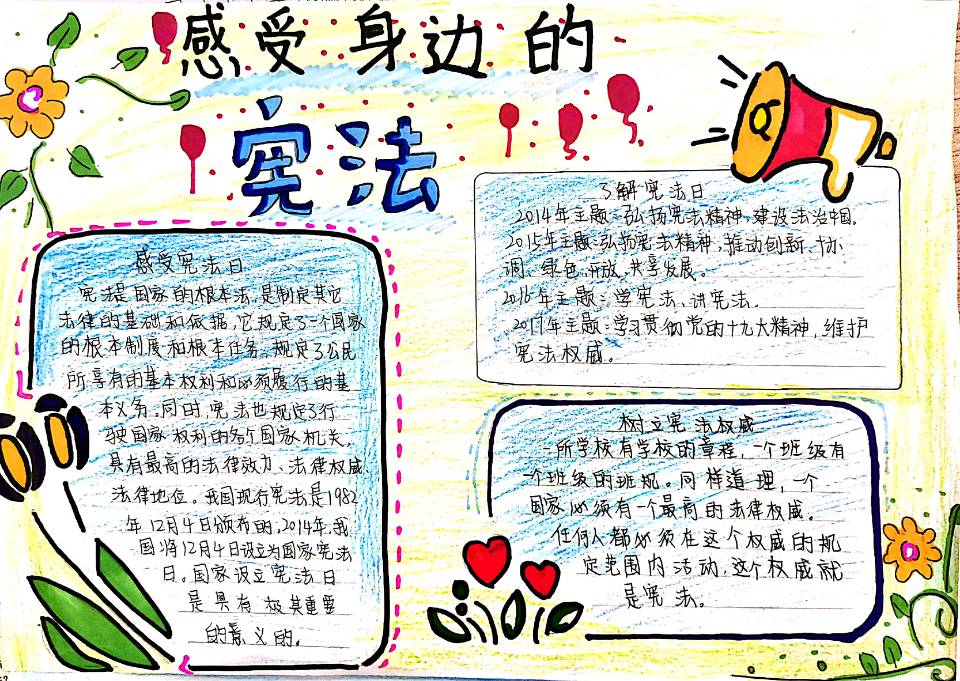 感受身边的
宪法
感受宪法日
宪法是国家的根本法,是制定其它
法律的基础和依据,它规定了一个国家
的根本制度和根本任务。规定了公民
所享有的基本权利和必须履行的基
本义务。同时,宪法也规定了行
驶国家权利的各个国家机关。
具有最高的法律效力、法律权威、
法律地位。我国现行宪法是1982
年12月4日颁布的,2014年,我
国将12月4日设立为国家宪法
日。国家设立宪法日
是具有极其重要
的意义的。
了解宪法日
2014年主题:弘扬宪法精神、建设法治中国。
2015年主题:弘扬宪法精神,推动创新、协
调、绿色、开放、共享发展。
2016年主题:学宪法、讲宪法。
2017年主题:学习贯彻党的十九大精神,维护
宪法权威。
树立宪法权威
一所学校有学校的章程,一个班级有
一个班级的班规。同样道理,一个
国家必须有一个最高的法律权威。
任何人都必须在这个权威的规
定范围内活动,这个权威就
是宪法。